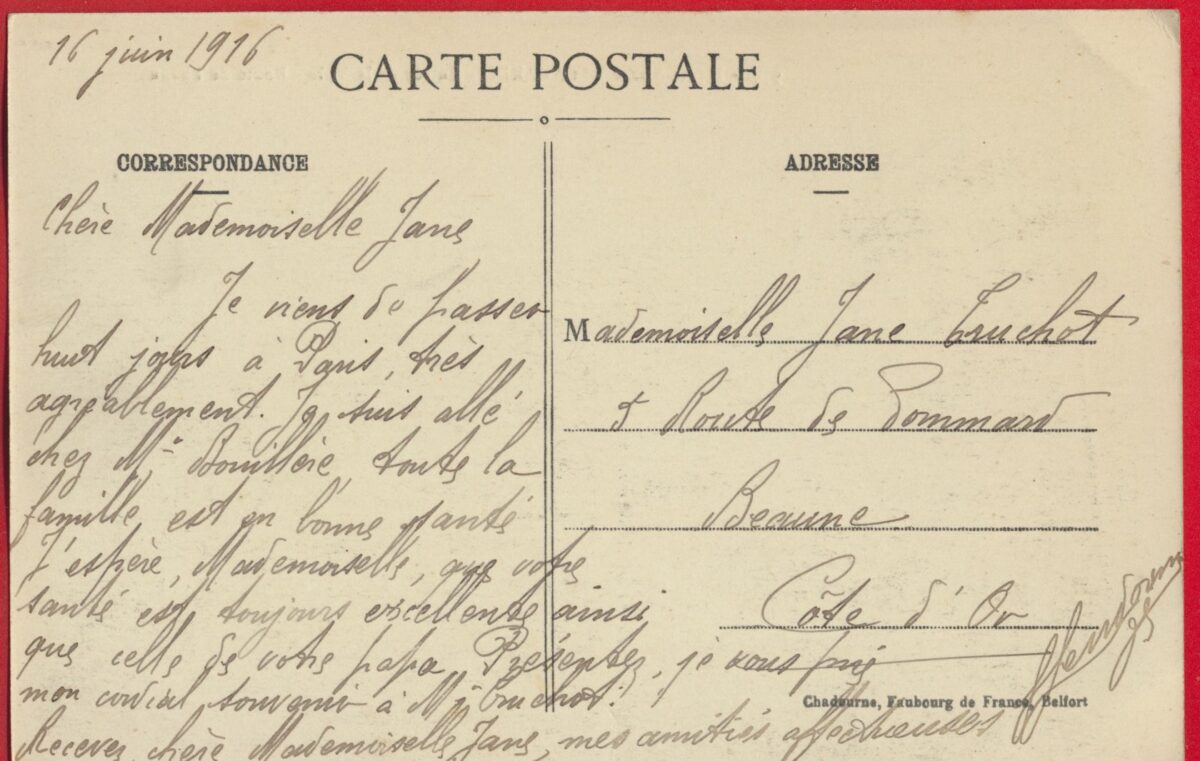 16 juin 1916
CARTE POSTALE
CORRESPONDANCE
Chère Mademoiselle Jane
Je viens de passer
huit jours à Paris, très
agréablement. Je suis allé
chez Mr Bouillère, toute la
famille, est en bonne santé
J'espère, Mademoiselle, que votre
santé est toujours excellente ainsi
que celle de votre papa. Présentez, je vous prie
mon cordial souvenir à Mr Truchot.
Recevez chère Mademoiselle Jane, mes amitiés affectueuses
ADRESSE
Mademoiselle Jane Truchot
Route de Pommard
Beaune
Côte d'Or
Chadourne, Faubourg de France, Belfort